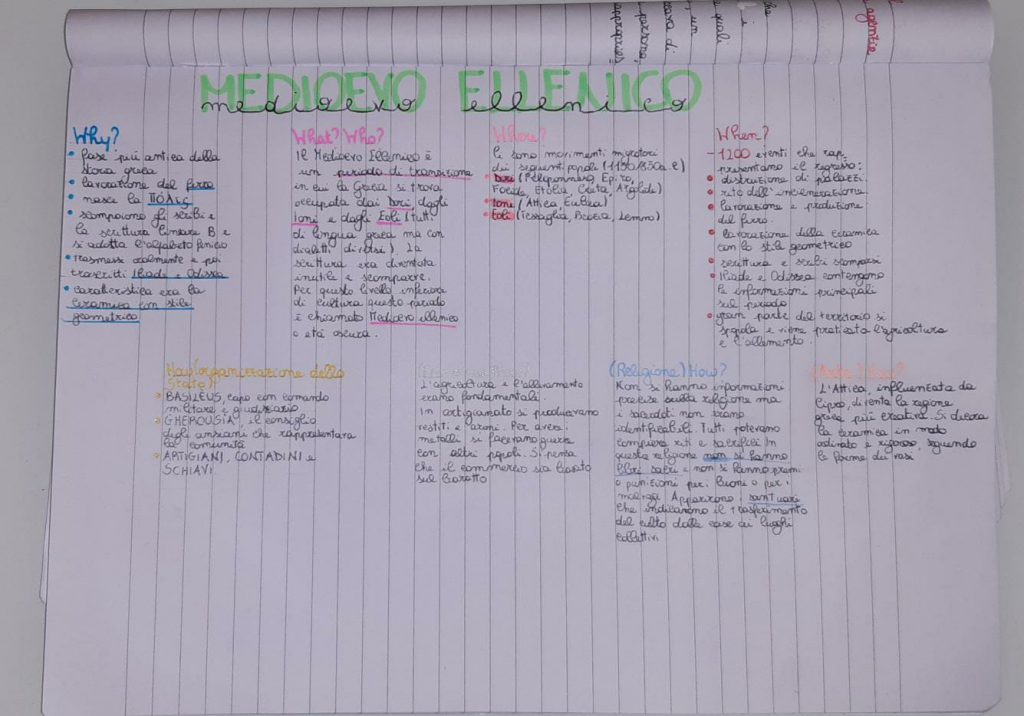 agentie
che
i
e quali
, un
cara di
persone,
appropries
MEDIOEVO ELLENICO
medioevo ellenico
Why?
• fase più antica della
storia greca
• lavorazione del ferro
• nasce la ΠΟΛΙΣ
• scompaiono gli scribi e
la scrittura lineare B e
si adotta l'alfabeto fenicio
• trasmessi oralmente e poi
trascritti Iliade e Odissea
• caratteristica era la
ceramica con stile
geometrico
What? Who?
Il Medioevo Ellenico è
un periodo di transizione
in cui la Grecia si trova
occupata dai Dori dagli
Ioni e dagli Eoli (tutti
di lingua greca ma con
dialetti diversi). La
scrittura era diventata
inutile e scomparve.
Per questo livello inferiore
di cultura questo periodo
è chiamato Medioevo ellenico
o età oscura.
Where?
Ci sono movimenti migratori
dei seguenti popoli (1150/850a.C)
• Dori (Peloponneso, Epiro,
Focide, Etolia, Creta, Argolide)
• Ioni (Attica, Eubea)
• Eoli (Tessaglia, Beozia, Lemno)
When?
- 1200 eventi che rap-
presentano il regresso:
• distruzione di palazzi
• rito dell'incenerazione
• lavorazione e produzione
del ferro.
• lavorazione della ceramica
con lo stile geometrico
• scrittura e scribi scomparsi
• Iliade e Odissea contengono
le informazioni principali
sul periodo
• gran parte del territorio si
spopola e viene praticata l'agricoltura
e l'allevamento.
How(organizzazione dello
Stato)?
> BASILEUS, capo con comando
militare e giudiziario
> GHEROUSIA, il consiglio
degli anziani che rappresentava
la comunità
> ARTIGIANI, CONTADINI e
SCHIAVI
L'agricoltura e l'allevamento
erano fondamentali.
In artigianato si producevano
vestiti e armi. Per avere i
metalli si facevano guerre
con altri popoli. Si pensa
che il commercio sia basato
sul baratto
(Religione) How?
Non si hanno informazioni
precise sulla religione ma
i sacerdoti non erano
identificabili. Tutti potevano
compiere riti e sacrifici. In
questa religione non si hanno
libri sacri e non si hanno premi
o punizioni per i buoni o per i
malvagi. Apparirono i santuari
che indicavano il trasferimento
del culto dalle case ai luoghi
collettivi
(Arte) How?
L'Attica influenzata da
Cipro, diventa la regione
greca più creativa. Si decora
la ceramica in modo
ordinato e rigoroso, seguendo
le forme dei vasi